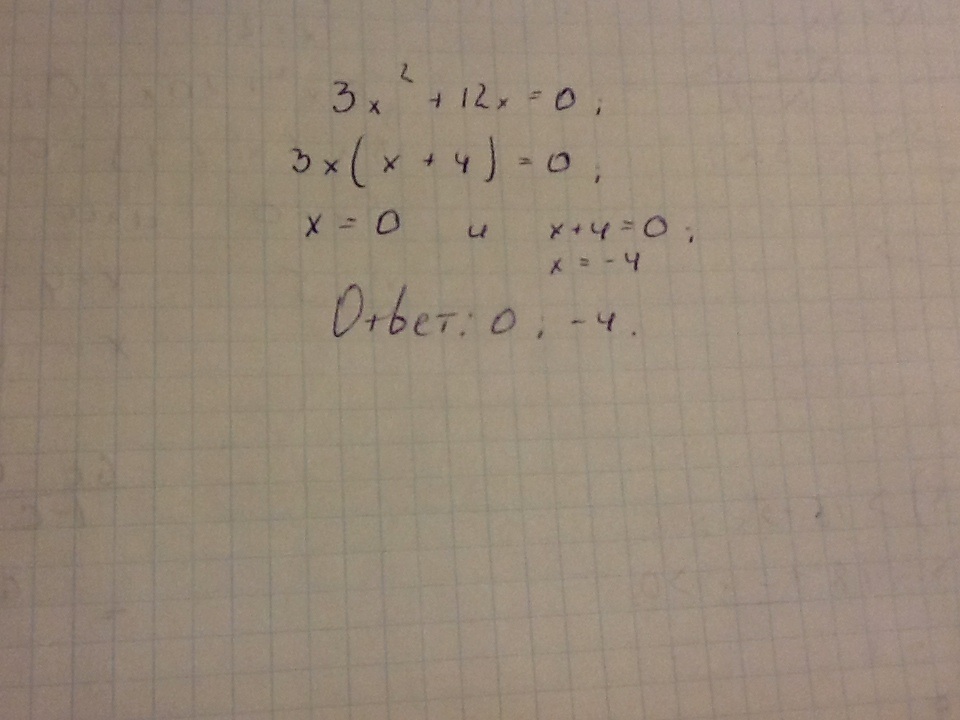 3x² + 12x = 0 ;
3x ( x + 4 ) = 0 ;
x = 0 и x + 4 = 0 ;
x = - 4
Ответ: 0 ; -4 .